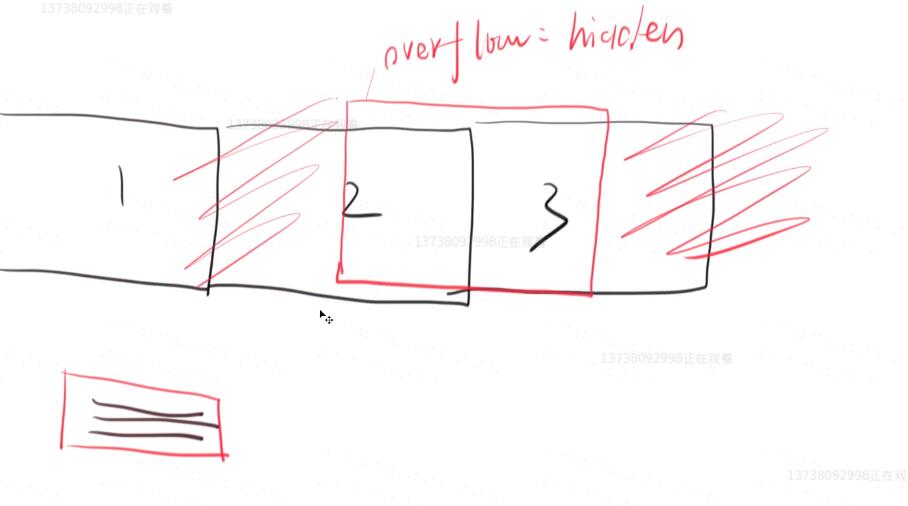 13738092998正在观看
overflow: hidden
13738092998正在观看
1
2
3
13738092998正在观看
13738092998正在观看
13738092998正在观